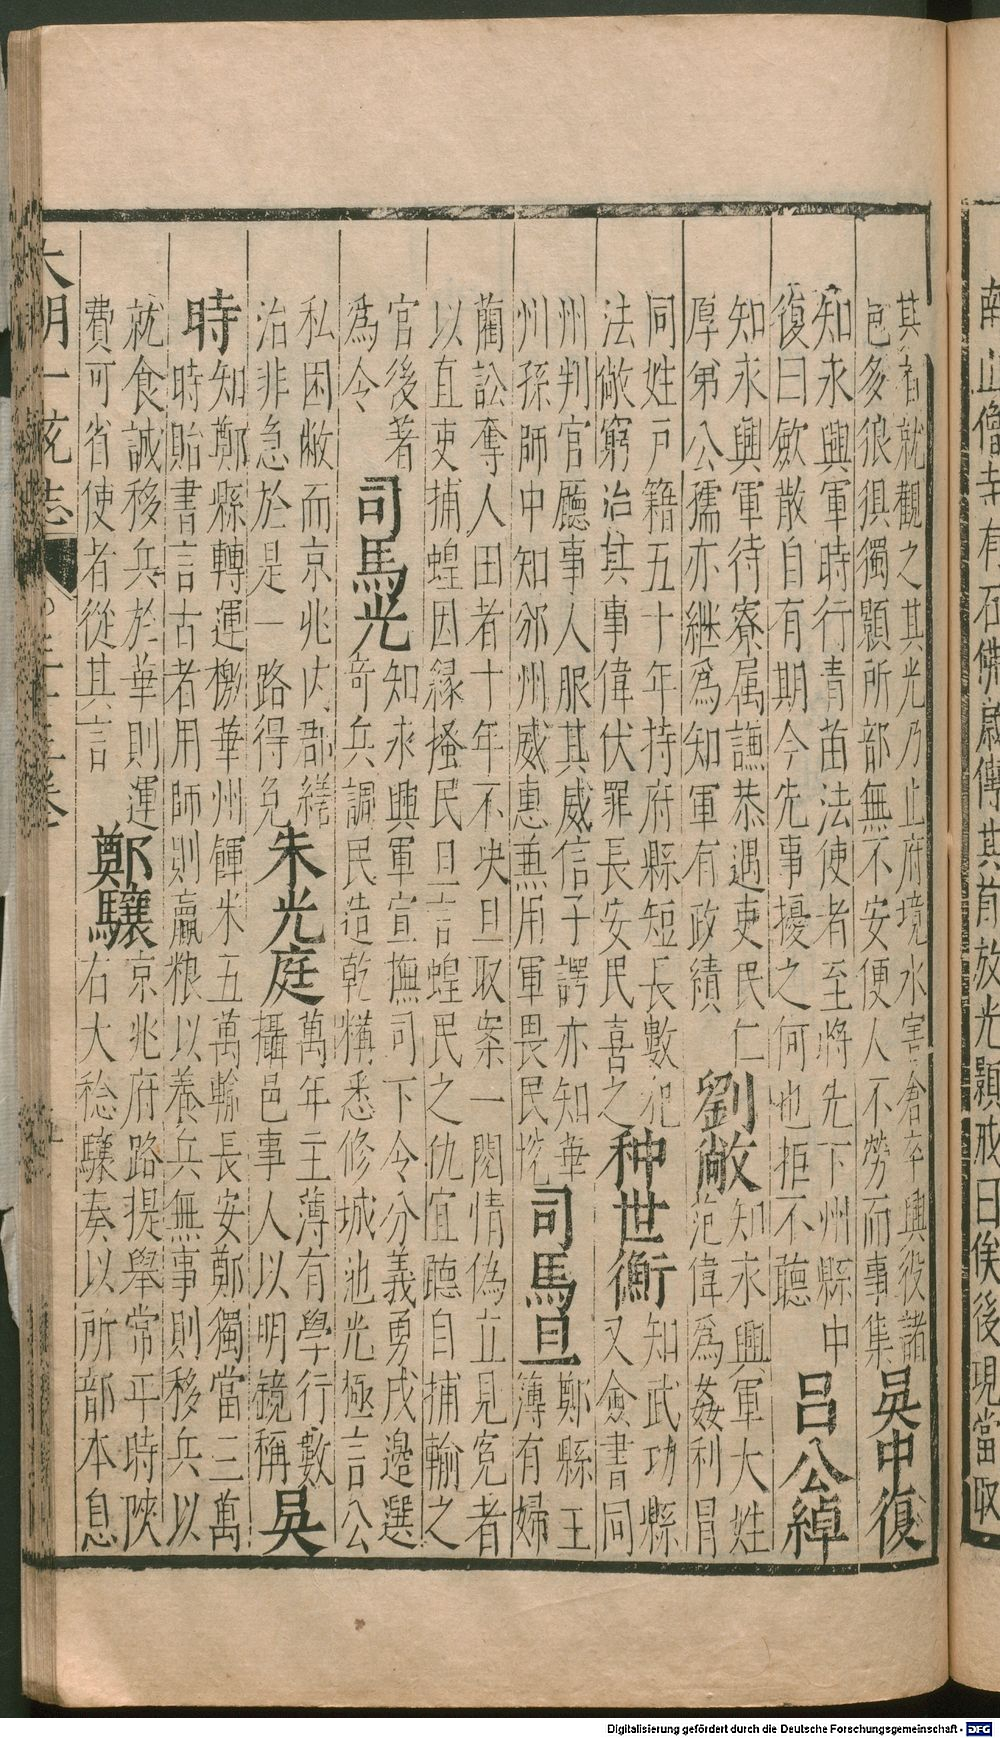 南山僧寺有石佛歳傳其首放光顥戒曰俟後現當取
其首就觀之其光乃止府境水害倉卒興役諸
邑多狼狽獨顥所部無不安便人不勞而事集
吳中復
知永興軍時行青苗法使者至將先下州縣中
復曰歛散自有期今先事擾之何也拒不聽
呂公綽
知永興軍待寮属謙恭遇吏民仁
厚弟公孺亦継爲知軍有政績
劉敞
知永興軍大姓
范偉爲姦利冒
同姓戸籍五十年持府縣短長數犯
法敞窮治其事偉伏罪長安民喜之
种世衡
知武功縣
又僉書同
州判官廳事人服其威信子諤亦知華
州孫師中知邠州威惠兼用軍畏民
司馬旦
鄭縣主
簿有婦
藺訟奪人田者十年不决旦取案一閱情偽立見寃者
以直吏捕蝗因緣搔民旦言蝗民之仇宜聽自捕輸之
官後著
爲令
司馬光
知永興軍宣撫司下令分義勇戍邊選
竒兵調民造乾糒悉修城池光極言公
私困敝而京兆内郡繕
治非急於是一路得免
朱光庭
萬年主薄有學行數
攝邑事人以明鏡稱
吳
時
知鄭縣轉運檄華州餫米五萬輸長安鄭獨當三萬
時貽書言古者用師則贏粮以養兵無事則移兵以
就食誠移兵於華則運
費可省使者從其言
鄭驤
京兆府路提舉常平時陜
右大稔驤奏以所部本息
大明一統志
Digitalisierung gefördert durch die Deutsche Forschungsgemeinschaft - DFG